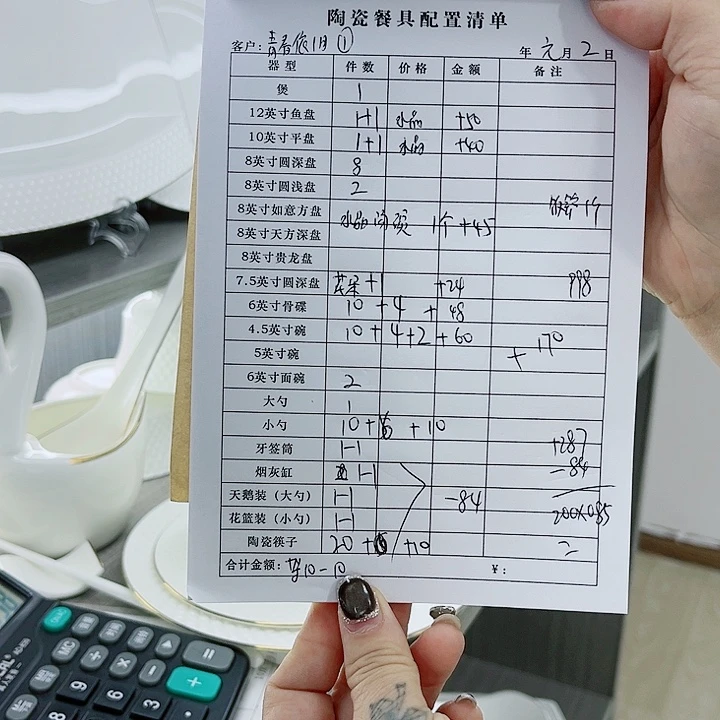 陶瓷餐具配置清单
客户: ① 年 元 月 2 日
器型 件数 价格 金额 备注
煲 1
12英寸鱼盘 1+1 水晶 +50
10英寸平盘 1+1 水晶 +40
8英寸圆深盘 8
8英寸圆浅盘 2
8英寸如意方盘 1个
水晶 1个 +45
8英寸天方深盘
8英寸贵龙盘
7.5英寸圆深盘 +1 +24 998
6英寸骨碟 10 +4 + 48
4.5英寸碗 10 +4+2 +60
5英寸碗 + 170
6英寸面碗 2
大勺 1
小勺 10 +6 +10
牙签筒 1-1 +287
烟灰缸 1-1 -84
天鹅装（大勺） 1-1 -84
花篮装（小勺） 1-1 200×085
陶瓷筷子 20 +6 +10 =
合计金额: ¥:
MC
M-
MR
M+
÷
×
-
+
9
6
8